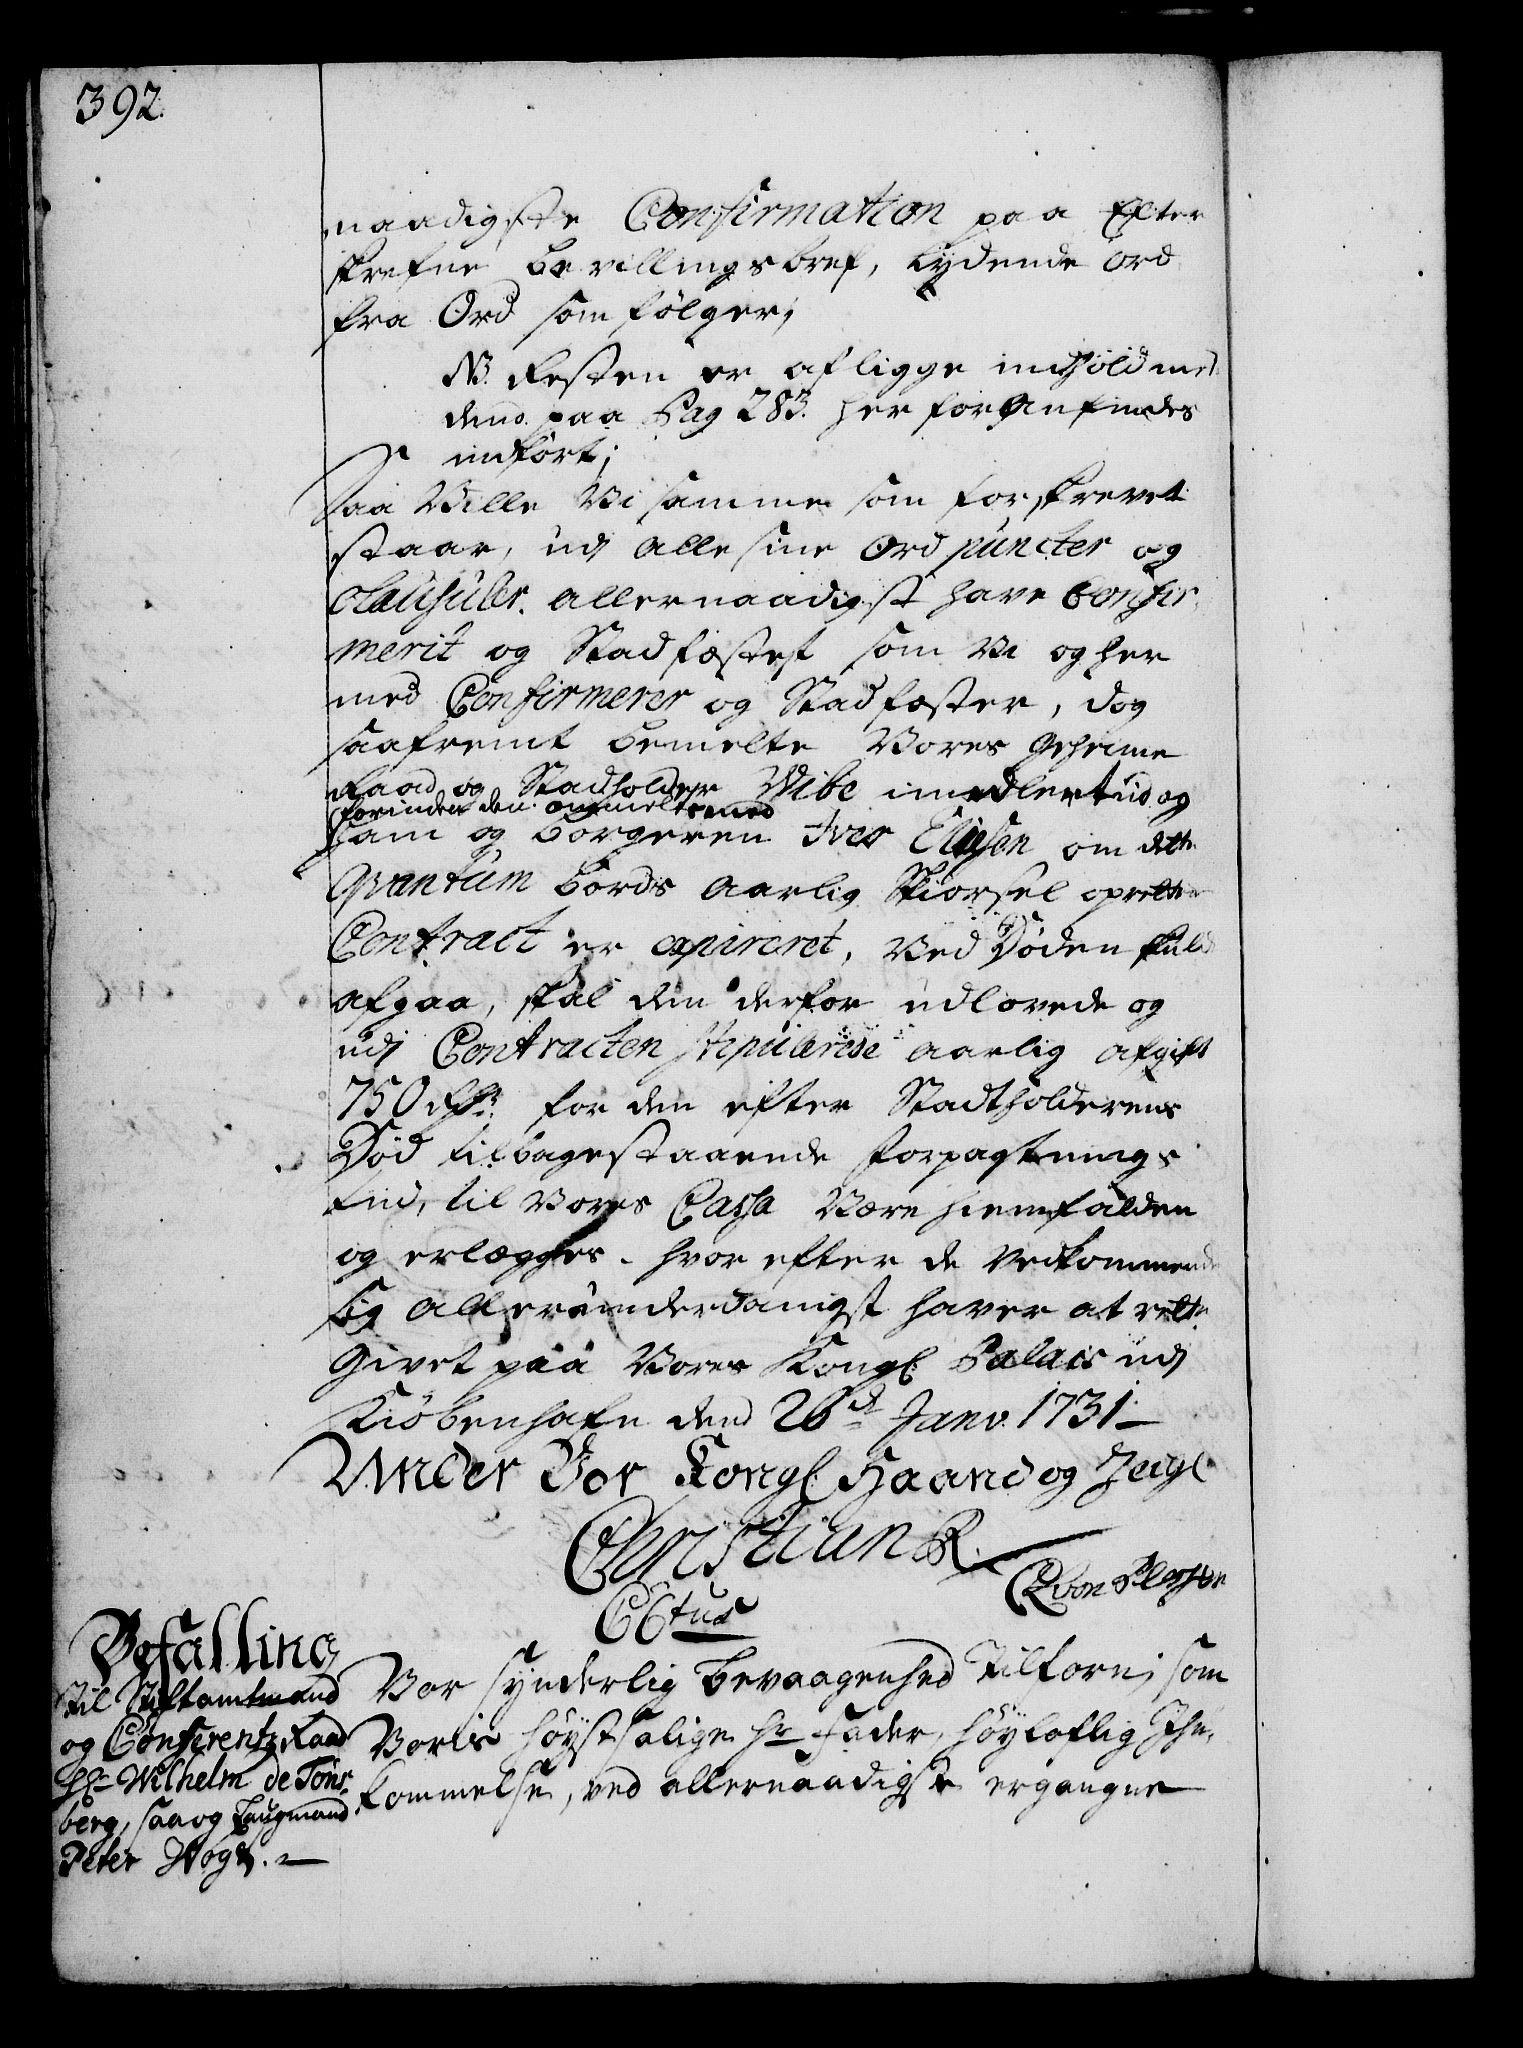 392.
naadigste Confirmation paa Efter
skrefne bevillingsbref, lydende Ord
fra Ord som følger;
NB. Resten er afligge indhold med
dend paa Pag 283. her foran findes
indført;
Saa Wille Vi samme som forskrevet
staar, udj alle sine Ord puncter og
Clausuler. allernaadigst have Confir¬
merit og Stadfæstet som Vi og her
med Confirmerer og Stadfæster, dog
saafremt bemelte Vores Geheime
Raad og Stadholder Wibe imedlertiid og
forinden den ommelte med
ham og borgeren Iver Eliesen om dette
Qvantum bords aarlig Skiørsel oprettede
Contract er expireret, Ved Døden skulde
afgaa, skal den derfor udlovede og
udj Contracten stipulerede aarlig afgift
750 rdr. for den efter Stadtholderens
Død tilbagestaaende forpagtnings
tiid, til Vores Cassa Være hiemfalden
og erlægges. hvor efter de Vedkommende
sig allerunderdanigst haver at rette
Givet paa Vores Kongl: Palais udj
Kiøbenhafn dend 26de Janv. 1731
Under Vor Kongl. Haand og Zeigl.
Christian R.
C von Plessen
CCtus
Befalling
til Stiftamtmand
og Conferentz Raad
Hr Wilhelm de Tøns¬
berg, saa og Laugmand
Peter Vogt.
Vor synderlig bevaagenhed Tilforn; som
Voris høystsalige Hr Fader, høyloflig Ihu¬
kommelse, ved allernaadigste ergangne